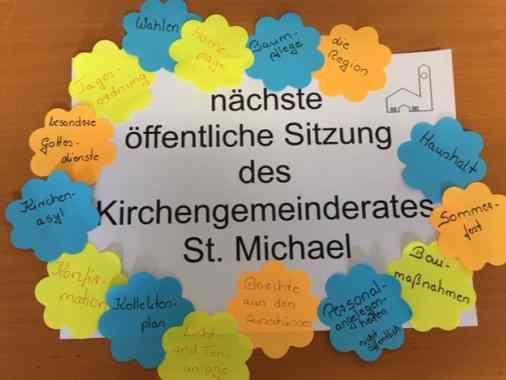 Wahlen
Home
page
Baum-
pflege
die
Region
Tages-
ordnung
besondere
Gottes-
dienste
Kirchen-
asyl
Konfir-
mation
Kollekten-
plan
Licht-
und Ton-
anlage
Berichte
aus den
Ausschüssen
Personal-
angelegen-
heiten
nicht
öffentlich
Bau-
maßnahmen
Sommer-
fest
Haushalt
nächste
öffentliche Sitzung
des
Kirchengemeinderates
St. Michael